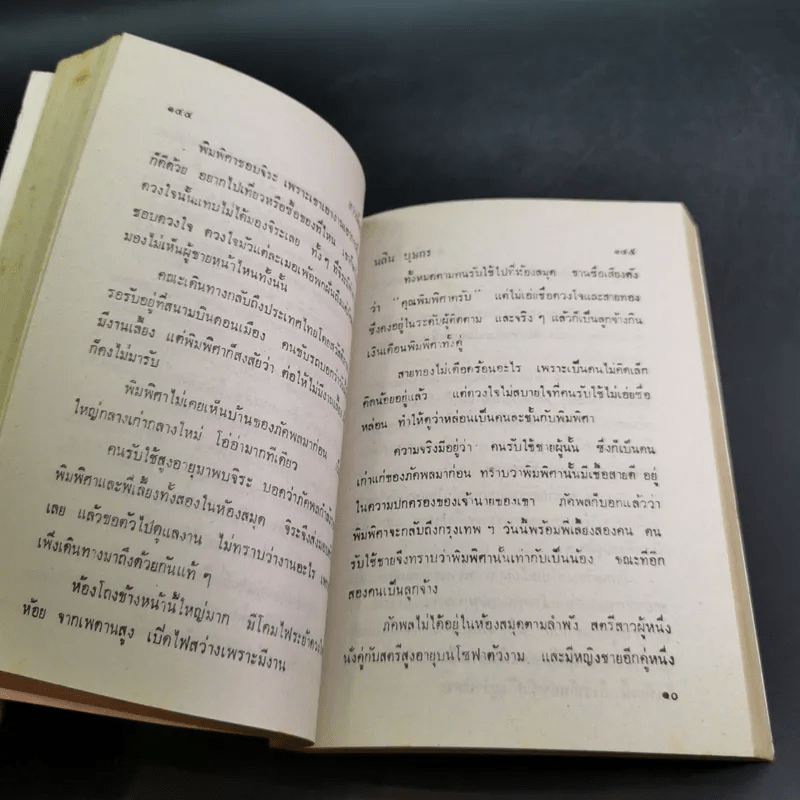 ๑๔๔
พิมพิศาชอบจิระ เพราะเขาเอางาน
ก็ดีด้วย อยากไปเที่ยวหรือซื้อของที่ไหน
ดวงใจนั้นแทบไม่ได้มองจิระเลย ทั้ง ๆ ที่จิระ
ชอบดวงใจ ดวงใจมัวแต่ละเมอเพ้อพกฝันถึง
มองไม่เห็นผู้ชายหน้าไหนทั้งนั้น
คณะเดินทางกลับถึงประเทศไทยโดย
รอรับอยู่ที่สนามบินดอนเมือง คนขับรถบอกว่า
มีงานเลี้ยง แต่พิมพิศาก็สงสัยว่า ต่อให้ไม่มีงาน
ก็คงไม่มารับ
พิมพิศาไม่เคยเห็นบ้านของภัคพลมาก่อน
ใหญ่กลางเก่ากลางใหม่ โอ่อ่ามากทีเดียว
คนรับใช้สูงอายุมาพบจิระ บอกว่าภัคพล
พิมพิศาและพี่เลี้ยงทั้งสองในห้องสมุด จิระจึงส่ง
เลย แล้วขอตัวไปดูแลงาน ไม่ทราบว่างานอะไร
เพิ่งเดินทางมาถึงด้วยกันแท้ ๆ
ห้องโถงข้างหน้านี้ใหญ่มาก มีโคมไฟระย้า
ห้อย จากเพดานสูง เปิดไฟสว่างเพราะมีงาน
นลิน บุษกร ๑๔๕
ทั้งหมดตามคนรับใช้ไปที่ห้องสมุด ขานชื่อเสียงดัง
ว่า “คุณพิมพิศาครับ” แต่ไม่เอ่ยชื่อดวงใจและสายทอง
ซึ่งคงอยู่ในระดับผู้ติดตาม และจริง ๆ แล้วก็เป็นลูกจ้างกิน
เงินเดือนพิมพิศาทั้งคู่
สายทองไม่เดือดร้อนอะไร เพราะเป็นคนไม่คิดเล็ก
คิดน้อยอยู่แล้ว แต่ดวงใจไม่สบายใจที่คนรับใช้ไม่เอ่ยชื่อ
หล่อน ทำให้ดูว่าหล่อนเป็นคนละชั้นกับพิมพิศา
ความจริงมีอยู่ว่า คนรับใช้ชายผู้นั้น ซึ่งก็เป็นคน
เก่าแก่ของภัคพลมาก่อน ทราบว่าพิมพิศานั้นมีเชื้อสายดี อยู่
ในความปกครองของเจ้านายของเขา ภัคพลก็บอกแล้วว่า
พิมพิศาจะกลับถึงกรุงเทพ ฯ วันนี้พร้อมพี่เลี้ยงสองคน คน
รับใช้ชายจึงทราบว่าพิมพิศานั้นเท่ากับเป็นน้อง ขณะที่อีก
สองคนเป็นลูกจ้าง
ภัคพลไม่ได้อยู่ในห้องสมุดตามลำพัง สตรีสาวผู้หนึ่ง
นั่งคู่กับสตรีสูงอายุบนโซฟาตัวงาม และมีหญิงชายอีกคู่หนึ่ง
๑๐